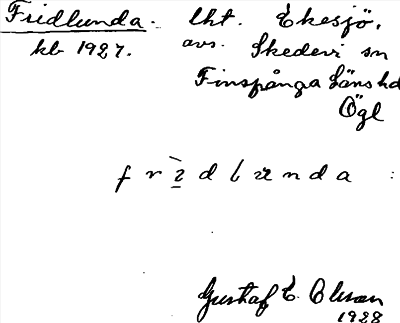 Fridlunda. lht. Ekesjö,
kb 1927. avs. Skedevi sn
Finspånga läns hd
Ögl
frìdlunda :
Gustaf E. Olsson
1928